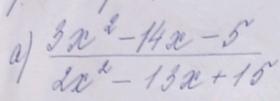 а) (3x² - 14x - 5) / (2x² - 13x + 15)